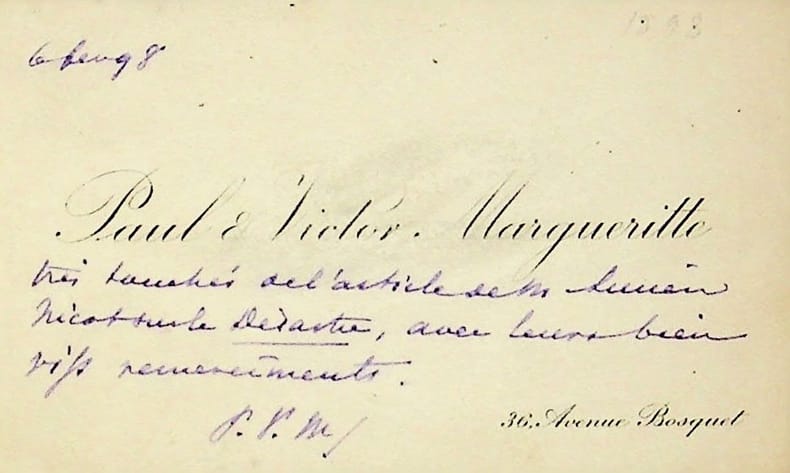 1898
6 fev 98
Paul & Victor Margueritte
très touchés de l'article de M. Lucien
Nicot sur le Désastre, avec leurs bien
vifs remerciments.
P. V. M
36, Avenue Bosquet